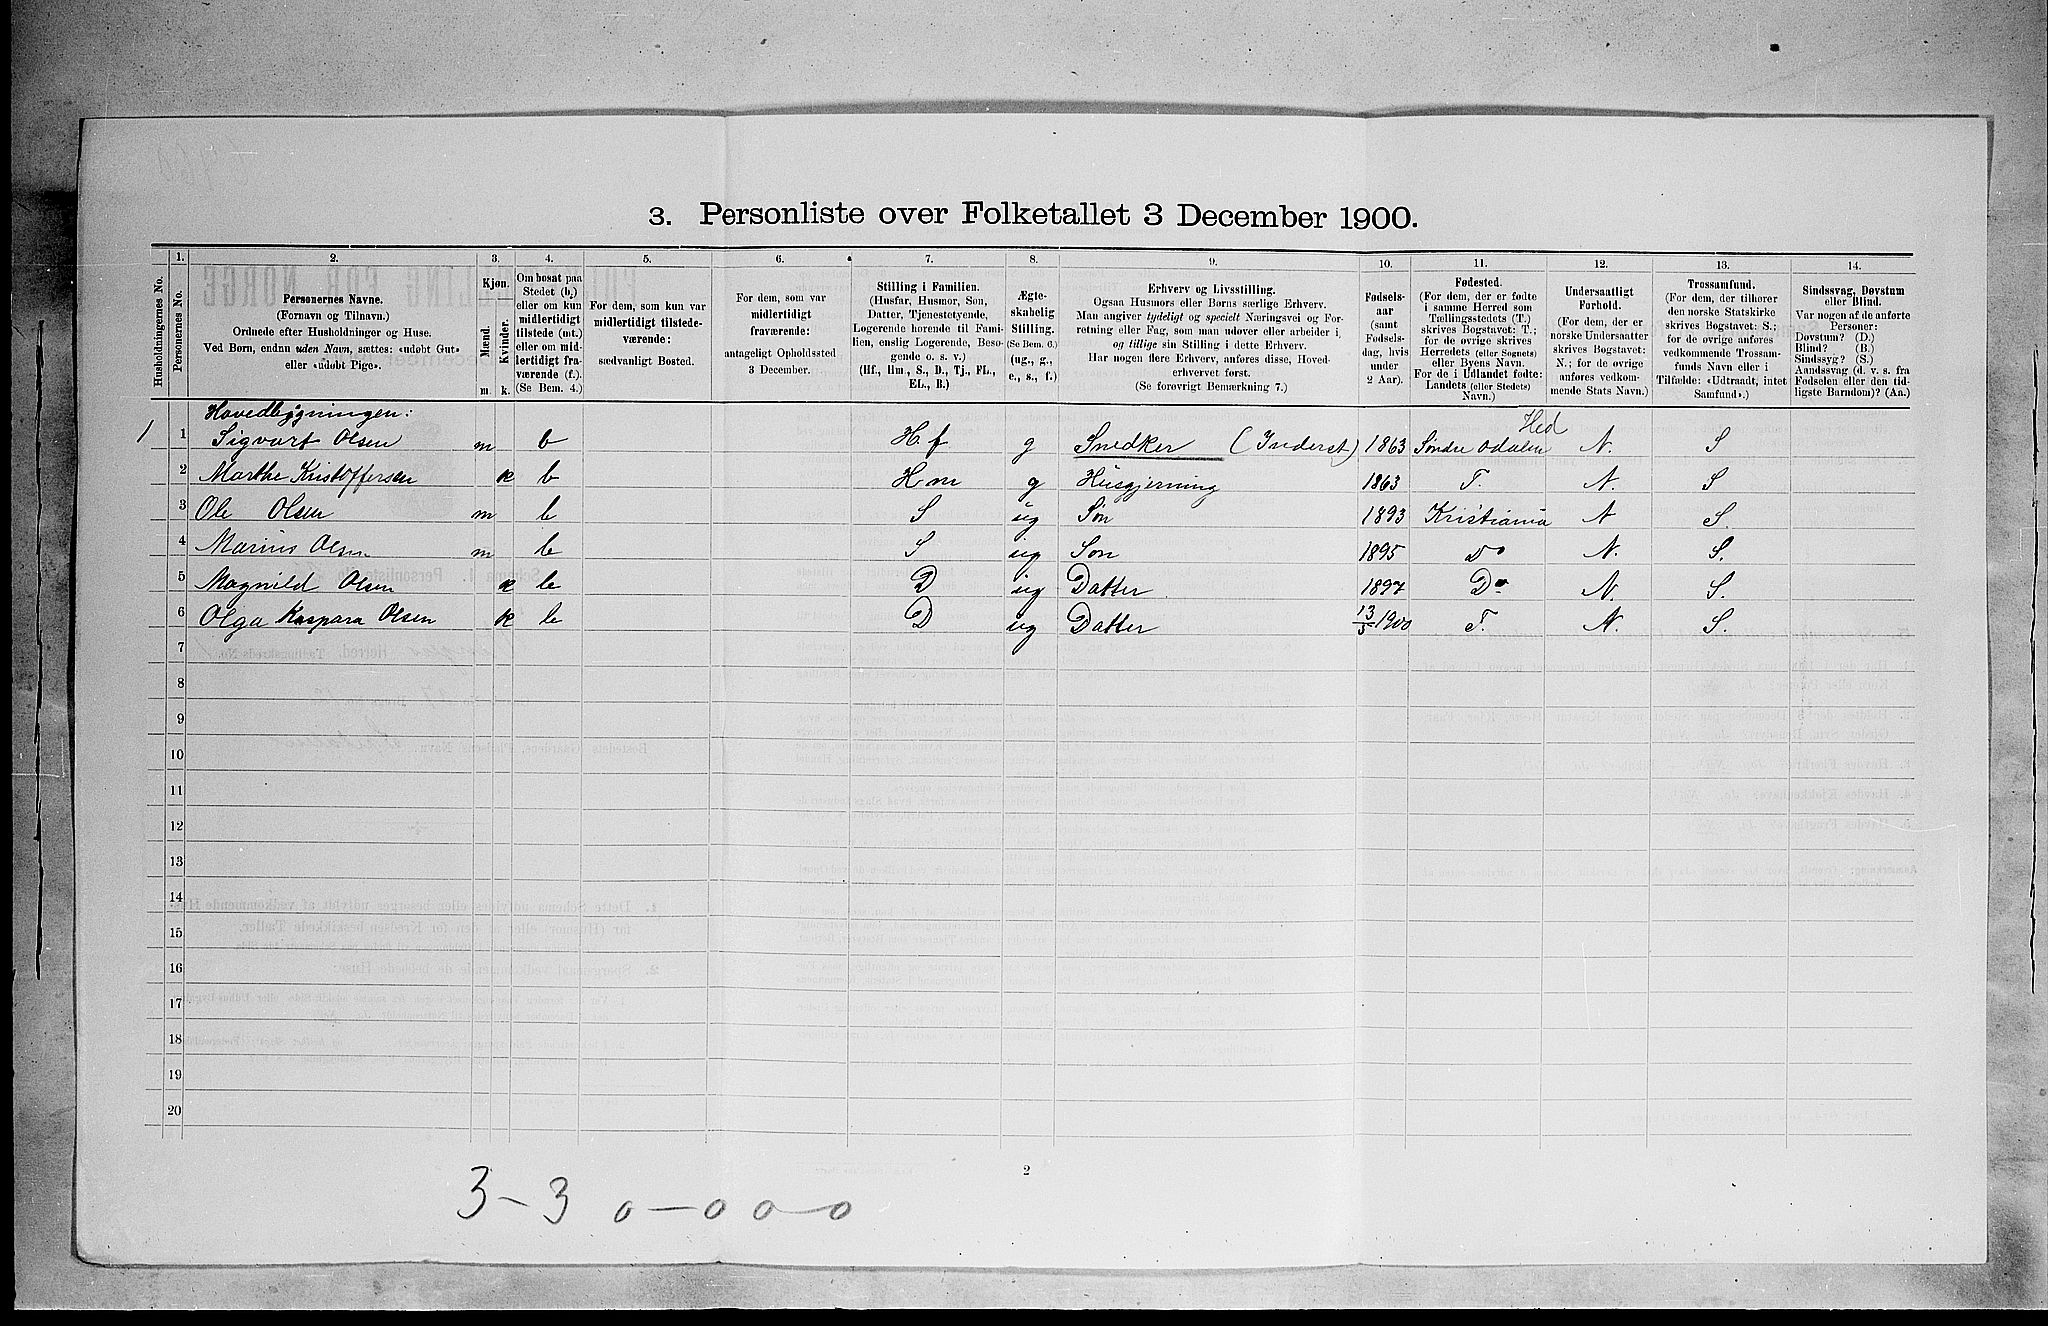 3. Personliste over Folketallet 3 December 1900.
Husholdningernes No.
1.
Personernes No.
2.
Personernes Navne.
(Fornavn og Tilnavn.)
Ordnede efter Husholdninger og Huse.
Ved Børn, endnu uden Navn, sættes: «udøbt Gut»
eller «udøbt Pige».
3.
Kjøn.
Mænd.
Kvinder.
m. k.
4.
Om bosat paa
Stedet (b.)
eller om kun
midlertidigt
tilstede (mt.)
eller om mid-
lertidigt fra-
værende (f.).
(Se Bem. 4.)
5.
For dem, som kun var
midlertidigt tilstede-
værende:
sædvanligt Bosted.
6.
For dem, som var
midlertidigt
fraværende:
antageligt Opholdssted
3 December.
7.
Stilling i Familien.
(Husfar, Husmor, Søn,
Datter, Tjenestetyende,
Logerende hørende til Fami-
lien, enslig Logerende, Besø-
gende o. s. v.)
(Hf., Hm., S., D., Tj., FL.,
EL., B.)
8.
Ægte-
skabelig
Stilling.
(Se Bem. 6.)
(ug., g.,
e., s., f.)
9.
Erhverv og Livsstilling.
Ogsaa Husmors eller Børns særlige Erhverv.
Man angiver tydeligt og specielt Næringsvei og For-
retning eller Fag, som man udøver eller arbeider i,
og tillige sin Stilling i dette Erhverv.
Har nogen flere Erhverv, anføres disse, Hoved-
erhvervet først.
(Se forøvrigt Bemærkning 7.)
10.
Fødsels-
aar
(samt
Fødsels-
dag, hvis
under
2 Aar).
11.
Fødested.
(For dem, der er fødte
i samme Herred som
Tællingsstedets (T.)
skrives Bogstavet: T.;
for de øvrige skrives
Herredets (eller Sognets)
eller Byens Navn.
For de i Udlandet fødte:
Landets (eller Stedets)
Navn.)
12.
Undersaatligt
Forhold.
(For dem, der er
norske Undersaatter
skrives Bogstavet:
N.; for de øvrige
anføres vedkom-
mende Stats Navn.)
13.
Trossamfund.
(For dem, der tilhører
den norske Statskirke
skrives Bogstavet: S.;
for de øvrige anføres
vedkommende Trossam-
funds Navn eller i
Tilfælde: «Udtraadt, intet
Samfund».)
14.
Sindssvag, Døvstum
eller Blind.
Var nogen af de anførte
Personer:
Døvstum? (D.)
Blind? (B.)
Sindssyg? (S.)
Aandssvag (d. v. s. fra
Fødselen eller den tid-
ligste Barndom)? (Aa.)
Hovedbygningen:
1 1 Sigvart Olsen m b Hf g Snedker (Inderst) 1863 Søndre Odalen Hed N. S
2 Marthe Kristoffersen k b Hm g Husgjerning 1863 T. N. S
3 Ole Olsen m b S ug Søn 1893 Kristiania N S.
4 Marius Olsen m b S ug Søn 1895 Do N. S.
5 Magnild Olsen k b D ug Datter 1897 Do N. S.
6 Olga Kaspara Olsen k b D ug Datter 13/5 1900 T. N. S.
7
8
9
10
11
12
13
14
15
16
17
18
19
20
2
3-3 0-0 0-0